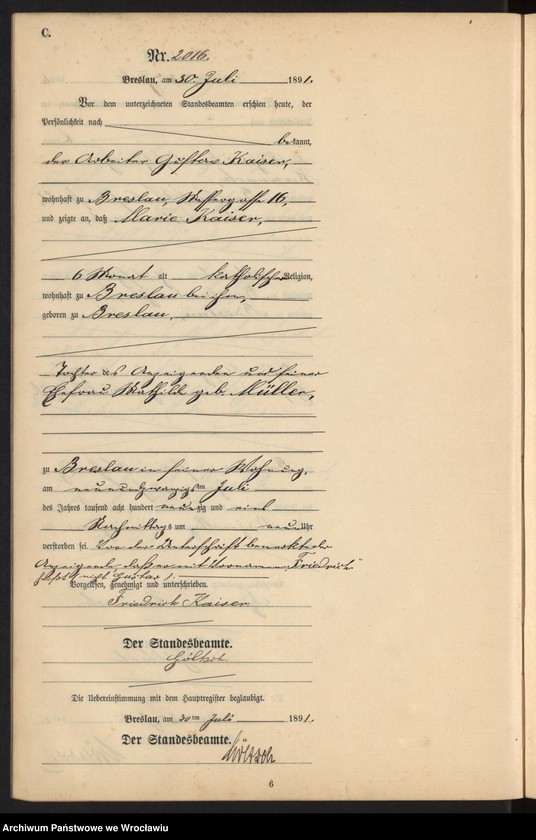 C.
Nr. 2016.
Breslau, am 30. Juli 1891.
Vor dem unterzeichneten Standesbeamten erschien heute, der
Persönlichkeit nach
bekannt,
der Arbeiter Gustav Kaiser,
wohnhaft zu Breslau, Messergasse 16,
und zeigte an, daß Marie Kaiser,
6 Monat alt katholischer Religion,
wohnhaft zu Breslau bei ihm,
geboren zu Breslau,
Tochter des Anzeigenden und seiner
Ehefrau Mathilde geb. Müller,
zu Breslau in seiner Wohnung,
am neunundzwanzigsten Juli
des Jahres tausend acht hundert neunzig und eins
Nachmittags um neun Uhr
verstorben sei. Vor der Unterschrift bemerkte der
Anzeigende, daß er mit Vornamen "Friedrich"
heißt (nicht Gustav).
Vorgelesen, genehmigt und unterschrieben.
Friedrich Kaiser
Der Standesbeamte.
Die Uebereinstimmung mit dem Hauptregister beglaubigt.
Breslau, am 30ten Juli 1891.
Der Standesbeamte.
6
Archiwum Państwowe we Wrocławiu